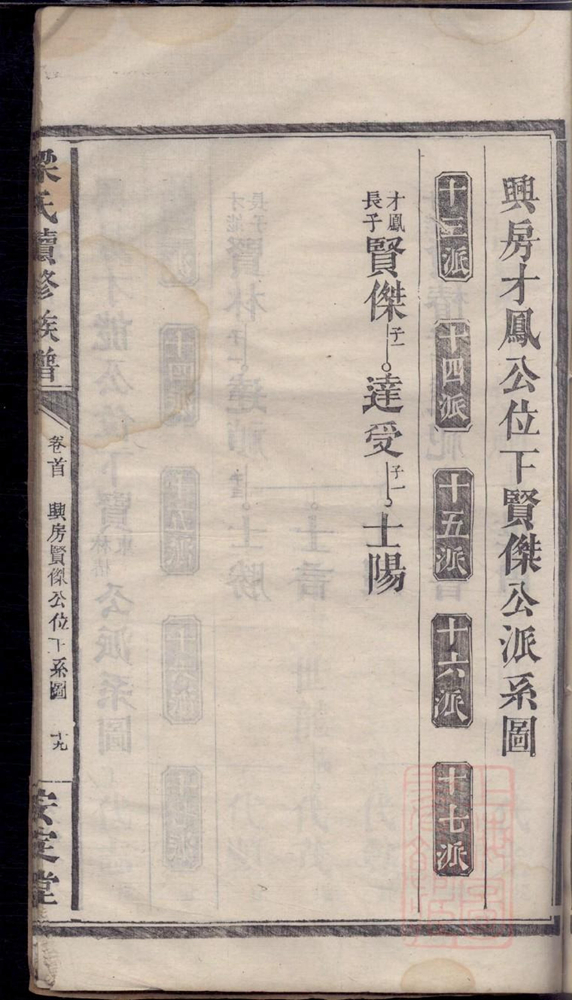 興房才鳳公位下賢傑公派系圖
十三派 十四派 十五派 十六派 十七派
才鳳長子 賢傑 子一 達受 子一 士陽
梁氏續修族譜 卷首 興房賢傑公位下系圖 十九 安定堂